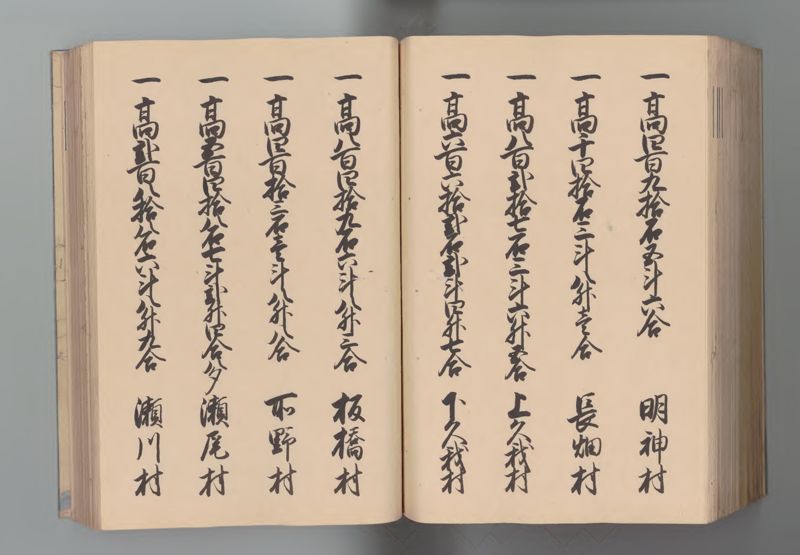 一高四百九拾石五斗六合 明神村
一高千四拾石三斗八升壱合 長畑村
一高八百弐拾七石三斗六升五合 上久我村
一高六百六拾弐石弐斗四升七合 下久我村
一高八百四拾九石六斗八升三合 板橋村
一高四百拾三石壱斗八升八合 所野村
一高五百四拾八石七斗弐升四合夕 瀬尾村
一高弐百八拾八石六斗八升九合 瀬川村